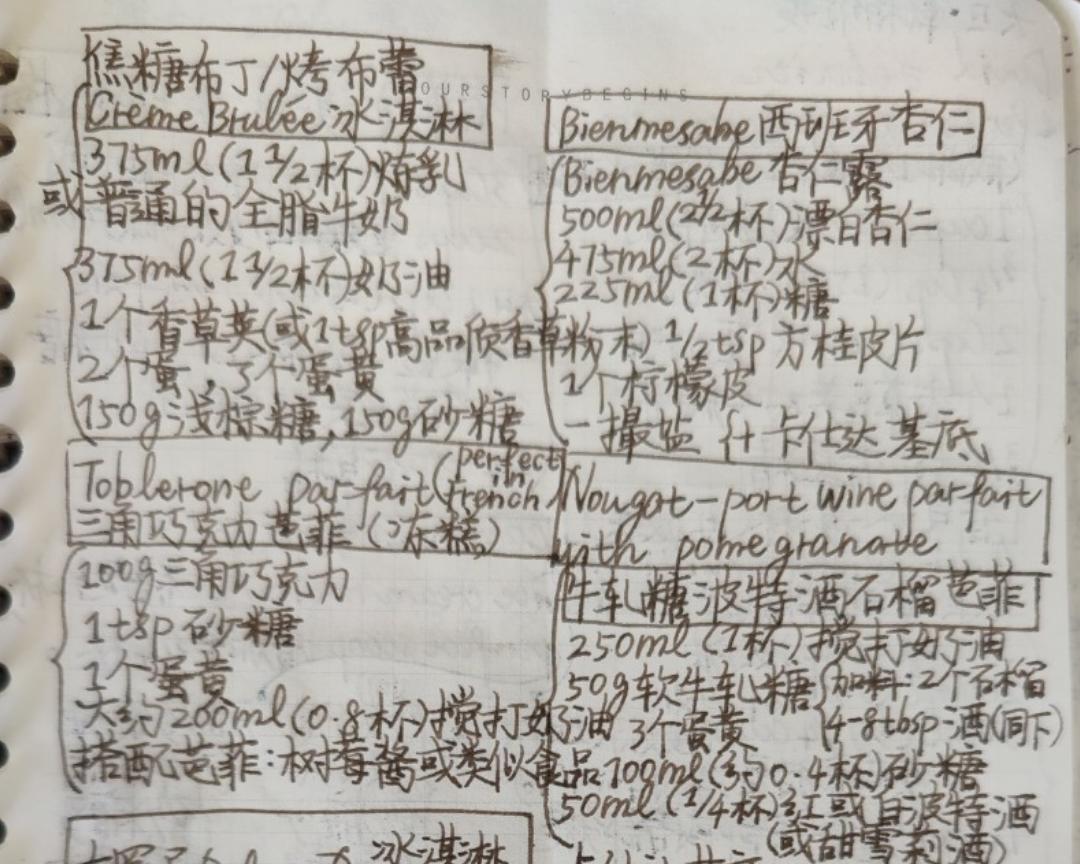 焦糖布丁/烤布蕾
OURSTORYBEGINS
Crème Brulée冰淇淋
375ml(1 1/2杯)炼乳
或普通的全脂牛奶
375ml(1 1/2杯)奶油
1个香草荚(或1tsp高品质香草粉末)
2个蛋,3个蛋黄
150g浅棕糖,150g砂糖
Toblerone parfait(perfect in french)
三角巧克力芭菲(冻糕)
100g三角巧克力
1tsp砂糖
1个蛋黄
大约200ml(0.8杯)搅打奶油
搭配芭菲:树莓酱或类似食品
冰淇淋
Bienmesabe西班牙杏仁
Bienmesabe杏仁露
500ml(2 1/2杯)漂白杏仁
475ml(2杯)水
225ml(1杯)糖
1/2tsp方桂皮片
1个柠檬皮
一撮盐 什卡仕达基底
Nougat-port wine parfait
with pomegranate
牛轧糖波特酒石榴芭菲
250ml(1杯)搅打奶油
50g软牛轧糖 加料:2个石榴
3个蛋黄 4-8tbsp酒(同下)
100ml(约0.4杯)砂糖
50ml(1/4杯)红或白波特酒
(或甜雪莉酒)